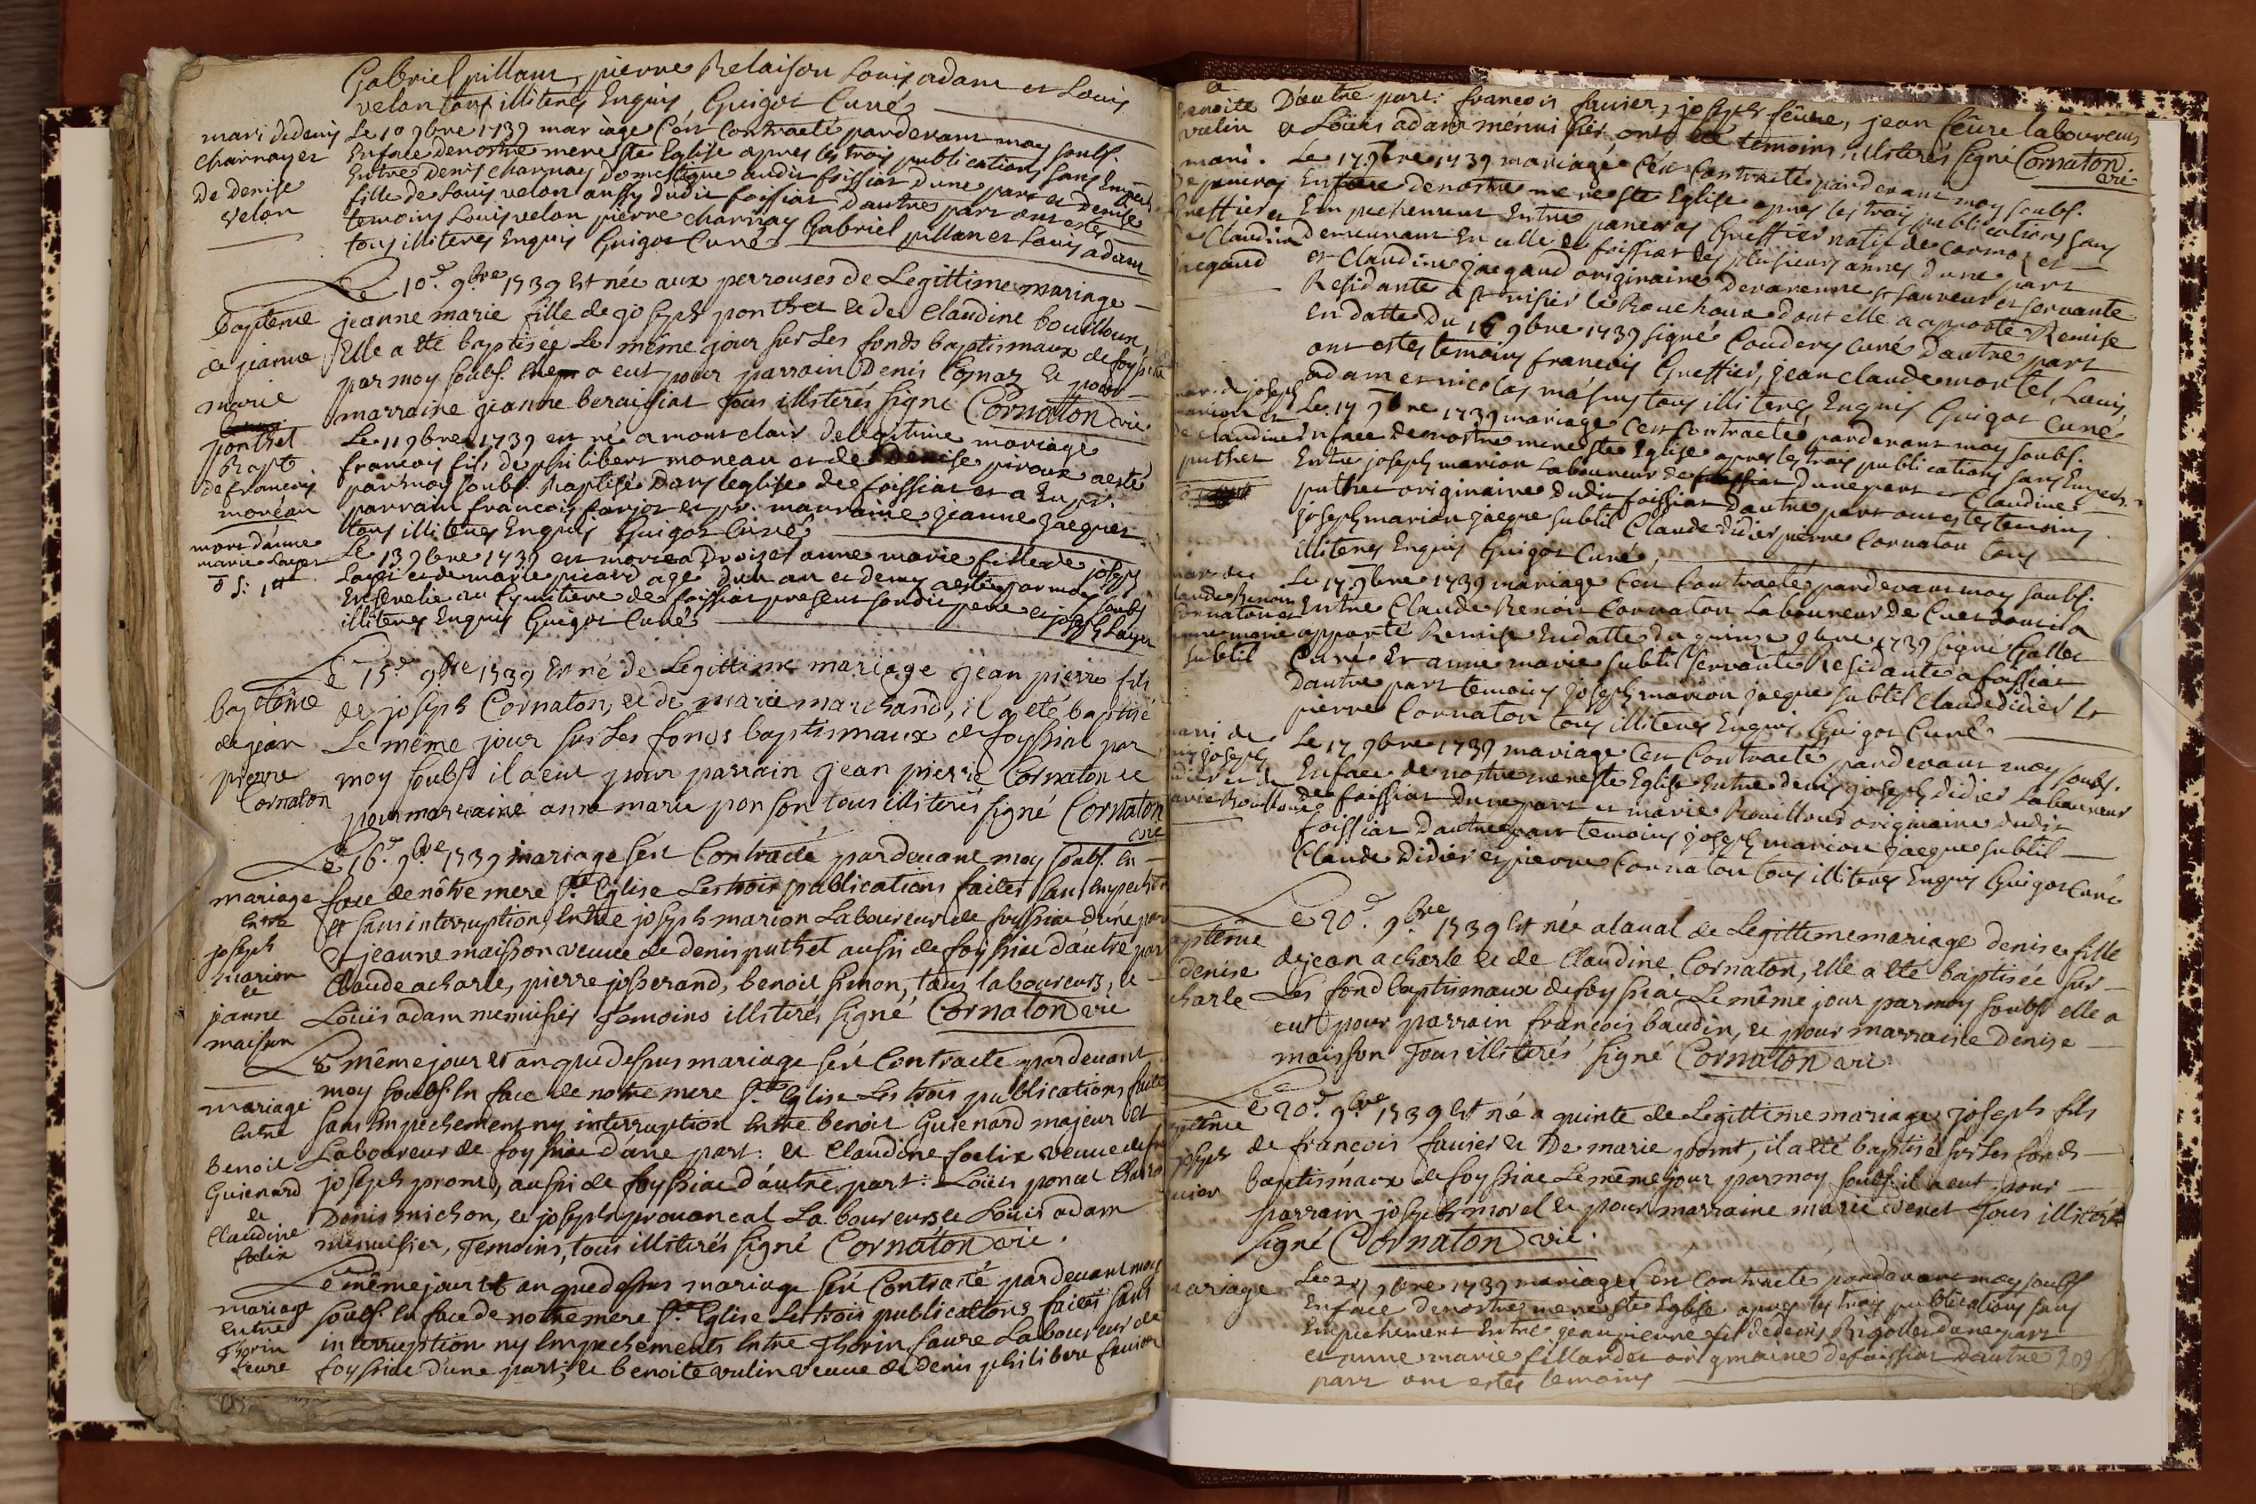 Gabriel pillaut, pierre Relaison Louis adam et Louis
velon tous illiteres Enquis, Guigot Curé
mari. de denis
charnay et
De Denise
velon
Le 10 9bre 1739 mariage C'est Contracté pardevant moy soubs.
En face de nostre mere ste Eglise apres les trois publications sans Empech.
Entre denis charnay domestique audit foissiat d'une part et Denise
fille de Louis velon aussy dudit foissiat d'autre part ont estes
temoins Louis velon pierre charnay Gabriel pillan et Louis adam
tous illiteres Enquis Guigot Curé
Bapteme
de jeanne
marie
ponthet
Le 10e. 9bre 1739 Est née aux perrouses de Legittime mariage
jeanne marie fille de joseph ponthet et de Claudine bouilloux,
Elle a été baptisée Le même jour sur Les fonds baptismaux de foyssiat
par moy soubs. a eut pour parrain Denis Cornaz et pour
marraine jeanne beraissiat tous illiterés signé Cornaton vic.
Bapt
de francois
moréau
Le 11 9bre 1739 est né a mont clair de legitime mariage
francois fils de philibert moreau et de Denise piroux a esté
par moy soubs. Baptisé dans l'eglise de foissiat et a Eu pr.
parrain francois forjot et pr. marraine jeanne jacquet
tous illiteres Enquis Guigot Curé
mort d'anne
marie Layer
Le 13 9bre 1739 est morte a Droiset anne marie fille de joseph
Layer et de marie picard age d'un an et demy a esté par moy soubs
Ensevelie au Cymitiere de foissiat present sondit pere et joseph Layer
illiteres Enquis Guigot Curé
baptême
de jean
pierre
Cornaton
Le 15e 9bre 1739 Est né de Legittime mariage jean pierre fils
de joseph Cornaton, et de marie marchand, il a eté baptisé
Le même jour sur Les fonds baptismaux de foyssiat par
moy soubs. il a eut pour parrain jean pierre Cornaton et
pour marraine anne marie ponson tous illiterés signé Cornaton
vic
mariage
Entre
joseph
marion
et
janne
maison
Le 16e. 9bre 1739 mariage s'est Contracté pardevant moy soubs. En
face de nôtre mere ste Eglise Les trois publications faites sans Empechem
et sans interruption, Entre joseph marion Laboureur de foyssiat d'une part
et jeanne maisson veuve de denis puthet aussi de foyssiat d'autre part
Claude acharle, pierre josserand, benoit simon, tous laboureurs, et
Loüis adam menuisier Temoins illiterés signé Cornaton vic
mariage
Entre
benoit
Guienard
et
Claudine
foelix
Le même jour et an que dessus mariage s'est Contracté pardevant
moy soubs. En face de notre mere ste. Eglise Les trois publications faites
sans Empechement ny interruption Entre benoit Guienard majeur et
Laboureur de foyssiat d'une part: et Claudine foelix veuve de
joseph pront, aussi de foyssiat d'autre part: Loüis poncet
Denis michon, et joseph provancal Laboureurs et Loüis adam
menuisier, Temoins, tous illiterés signé Cornaton vic.
mariage
Entre
Thorin
feure
Le même jour et an que dessus mariage s'est Contracté pardevant moy
soubs. En face de notre mere ste. Eglise Les trois publications faites sans
interruption ny Empechements Entre Thorin faure Laboureur de
foyssiat d'une part, et benoite vulin veuve de denis philibert
et
benoite
vulin
D'autre part: francois favier, joseph feûre, jean feûre laboureurs
et Loüis adam menuisier, ont été temoins illiterés signé Cornaton
vic
mari.
de panciras
Greffier et
de Claudine
jacgaud
Le 17 9bre 1739 mariage C'est Contracté pardevant moy soubs.
En face de nostre mere ste Eglise apres les trois publications sans
Empechement Entre panciras Greffier natif de cormoz et
demeurant En celle de foissiat des plusieurs annes d'une part
et Claudine jacgaud originaire de varenne st sauveur et servante
Residante a st nisier le Bouchoux dont elle a aporté Remise
en datte du 16 9bre 1739 signé Coudery curé d'autre part
ont estes temoins francois Greffier, jean claude montel, Louis
adam et nicolas mason tous illiteres Enquis Guigot Curé
mar. de joseph
marion et
de claudine
puthet
Le 17 9bre 1739 mariage c'est contracté pardevant moy soubs.
En face de nostre mere ste Eglise apres les trois publications sans Empech.
Entre joseph marion Laboureur de foissiat d'une part et Claudine
puthet originaire dudit foissiat d'autre part ont estes temoins
joseph marion jacque subtil Claude didier pierre Cornaton tous
illiteres Enquis Guigot Curé
mar. de
claude Benoit
Cornaton et
anne marie
subtil
Le 17 9bre 1739 mariage C'est Contracté pardevant moy soubs.
Entre Claude Benoit Cornaton Laboureur de Cuet dont il a
apporté Remise En datte du quinze 9bre 1739 signé Gallet
Curé Et anne marie subtil servante Residante a foissiat
d'autre part temoins joseph marion jacque subtil Claude didier Et
pierre Cornaton tous illiteres Enquis Guigot Curé
mari de
denis joseph
didier et de
marie Bouilloud
Le 17 9bre 1739 mariage C'est Contracté pardevant moy soubs.
En face de nostre mere ste Eglise Entre denis joseph didier Laboureur
de foissiat d'une part et marie Bouilloud originaire dudit
foissiat d'autre part temoins joseph marion jacque subtil
Claude didier et pierre Cornaton tous illiteres Enquis Guigot Curé
baptême
denise
charle
Le 20e. 9bre 1739 Est née a laval de Legittime mariage denise fille
de jean acharle et de Claudine Cornaton, elle a eté baptisée sur
Les fond baptismaux de foyssiat Le même jour par moy soubs. elle a
eut pour parrain francois baudin, et pour marraine Denise
maisson Tous illiterés signé Cornaton vic.
baptême
joseph
favier
Le 20e. 9bre 1739 Est né a quinte de Legittime mariage joseph fils
de francois favier et De marie pont, il a eté baptisé sur Les fonds
baptismaux de foyssiat Le même jour par moy soubs. il a eut pour
parrain joseph morel et pour marraine marie venet Tous illiterés
signé Cornaton vic.
mariage
Le 21 9bre 1739 mariage s'est Contracté pardevant moy soubs
En face de nostre mere ste Eglise apres les trois publications sans
Empechement Entre jean pierre fils de denis Rigollet d'une part
et anne marie fillardet originaire de foissiat d'autre
part ont estes temoins
209